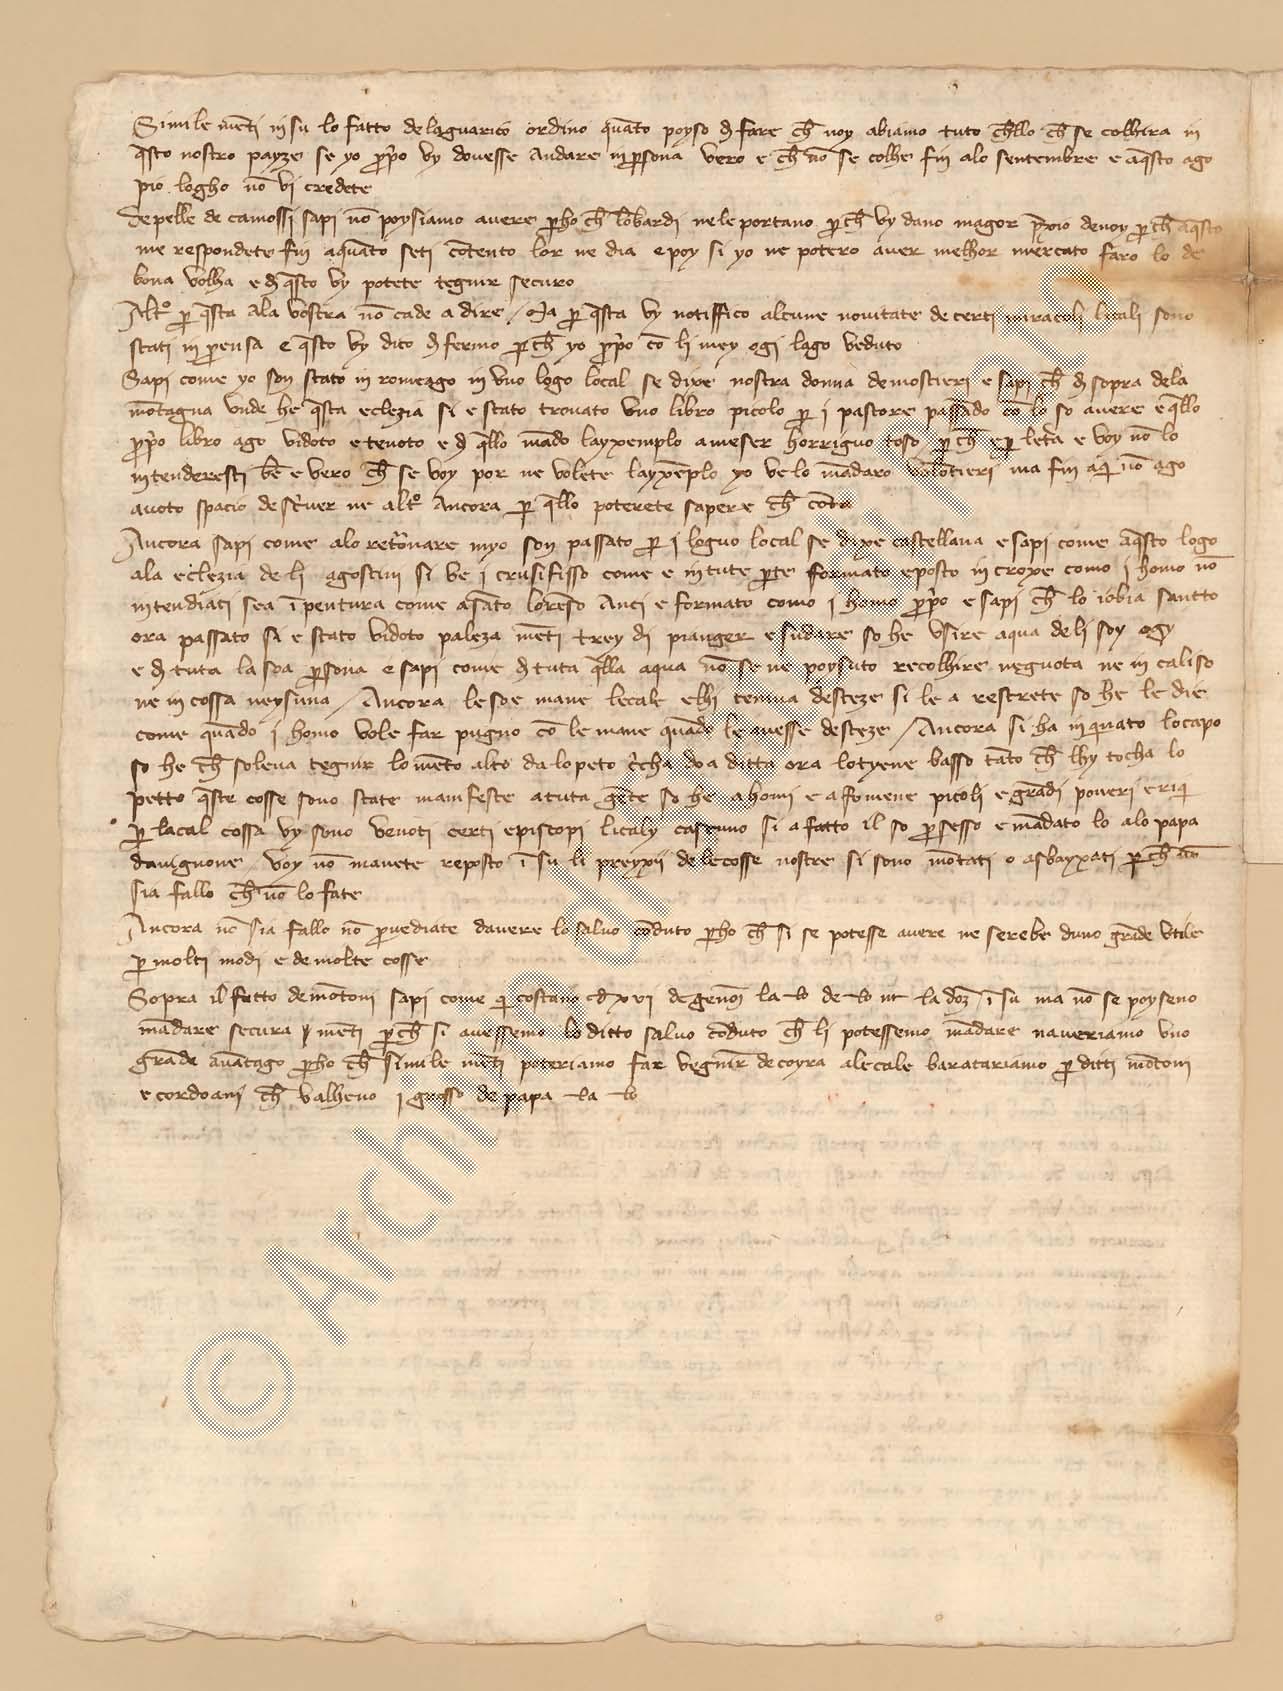 Simile mēti in su lo fatto de laguarico ordino quāto poyso d fare ch̄ noy abiamo tuto ch̄llo ch̄ se colhira in
q̄sto nostro payze se yo ꝓp̄o vy dovesse andare in p̱sona vero e ch̄ nō se colhe fin alo sentembre e aq̄sto ago
pio logho nō vi credete
De pelle de camossi sapi nō poysiamo avere p̱ho ch̄ lōbardi ne le portano p̱ch̄ vy dano magor p̄xio de noy p̱ch̄ aq̄sto
me respondete fin aquāto seti cōtento lor ne dia e poy si yo ne potero aver melhor mercato faro lo de
bona volha e d q̄sto vy potete tegnir securo
Altro p̱ q̄sta ala vostra nō cade a dire / Ma p̱ q̄sta vy notiffico alcune novitate de certi miracoli licali sono
stati in p̱ensa e q̄sto vy dico d fermo p̱ch̄ yo ꝓp̄o cō li mey ogi lago veduto
Sapi come yo son stato in romeago in uno logo local se dixe nostra donna de mostieri e sapi ch̄ d sopra de la
mōtagna unde he q̄sta eclezia si e stato trovato uno libro picolo p̱ i pastore passādo cō lo so avere e q̄llo
ꝓp̄o libro ago vidoto e tenoto e d q̄llo mādo layxemplo a meser horriguo toso p̱ch̄ e p̱ letr̄a e voy nō lo
intenderesti bē e vero ch̄ se voy por ne volete layxēplo yo ve lo mādaro volōtieri ma fin aq̄ nō ago
avoto spacio de scr̄iver ne alt° ancora p̱ q̄llo poterete sapere ch̄ cōta
Ancora sapi come alo ret°rnare myo son passato p̱ i loguo local se dixe castellana e sapi come aq̄sto logo
ala eclezia de li agostini si ve i crusifisso come e in tute p̱te formato e posto in croxe como i homo nō
intendiati sea ī pentura come a sāto lorēso Anci e formato como i homo ꝓp̄o e sapi ch̄ lo iobia santto
ora passato si e stato vidoto paleza mēti trey di pianger e sudare so he usire aqua de li soy ogy
e d tuta la soa p̱sona e sapi come d tuta q̄lla aqua nō se ne poysuto recolhire neguota ne in caliso
ne in cossa neysuna / Ancora le soe mane lecale elhi tenma desteze si le a restrete so he le die
come quādo i homo vole far pugno cō le mane quādo le avesse desteze / Ancora si ha in quato lo capo
so he ch̄ soleva tegnir lo mēto alto da lo peto c̄cha doa ditta ora lo tyene basso tāto ch̄ lhy tocha lo
petto q̄ste cosse sono state manifeste a tuta gēte so he a homi e a fomene picoli e grādi poveri e riq̄
p̱ lacal cossa vy sono venoti certi episcopi licaly casenno si a fatto il so p̱sesso e mādato lo alo papa
davignone / Voy nō manete reposto ī su li preyxii de le cosse nostre si sono mōtati o asbayxati p̱ch̄ nō
sia fallo ch̄ nō lo fate
Ancora nō sia fallo nō p̱vediate davere lo salvo cōduto p̱ho ch̄ si se potesse avere ne serebe duno grāde utile
p̱ molti modi e de molte cosse
Sopra il fatto de mōtoni sapi come q̄ costano d xvi de genov̄ la lb de lb la doz̄ ī su ma nō se poyseno
mādare secura mēti p̱ch̄ si avessemo lo ditto salvo cōduto ch̄ li potessemo mādare n averiamo uno
grāde avātago p̱ho ch̄ simile mēti poteriamo far vegnir de coyra alecale baratariamo p̱ ditti mōtoni
e cordoani ch̄ valheno i grosso de papa la lb
© Archivio di Stato di Prato